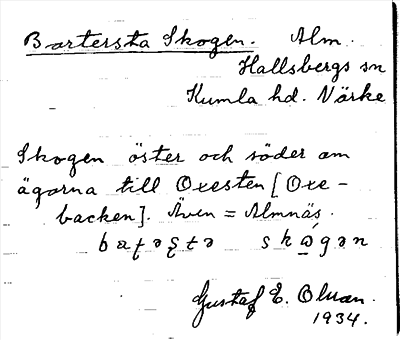 Bartersta Skogen. Alm.
Hallsbergs sn
Kumla hd. Närke
Skogen öster och söder om
ägorna till Oxesten [Oxe-
backen]. Även = Almnäs.
Gustaf E. Olman.
1934.